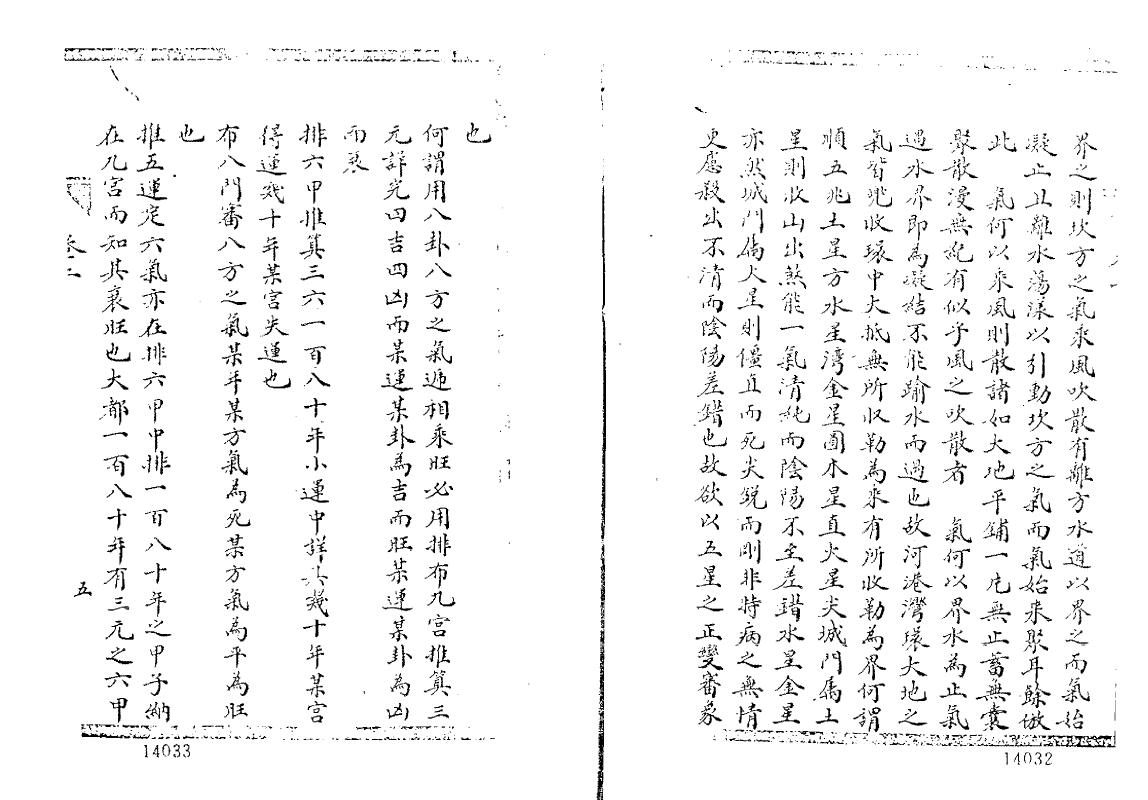 界之則坎方之氣乘風吹散有離方水道以界之而氣始
凝止且離水蕩漾以引動坎方之氣而氣始來聚耳餘倣
此　氣何以乘風則散諸如大地平鋪一片無止蓄無囊
聚散漫無紀有似乎風之吹散者　氣何以界水為止氣
遇水界即為凝結不能踰水而過也故河港灣環大地之
氣皆兜收環中大抵無所收勒為乘有所收勒為界何謂
順五兆土星方水星灣金星圓木星直火星尖城門屬土
星則收山出煞能一氣清純而陰陽不至差錯水星金星
亦然城門屬火星則僵直而死尖銳而剛非特病之無情
更慮殺出不清而陰陽差錯也故欲以五星之正變審象
14032
也
何謂用八卦八方之氣遞相乘旺必用排布九宮推算三
元詳究四吉四凶而某運某卦為吉而旺某運某卦為凶
而衰
排六甲推算三六一百八十年小運中詳其幾十年某宮
得運幾十年某宮失運也
布八門審八方之氣某年某方氣為死某方氣為平為旺
也
推五運定六氣亦在排六甲中排一百八十年之甲子納
在九宮而知其衰旺也大都一百八十年有三元之六甲
卷二
五
14033